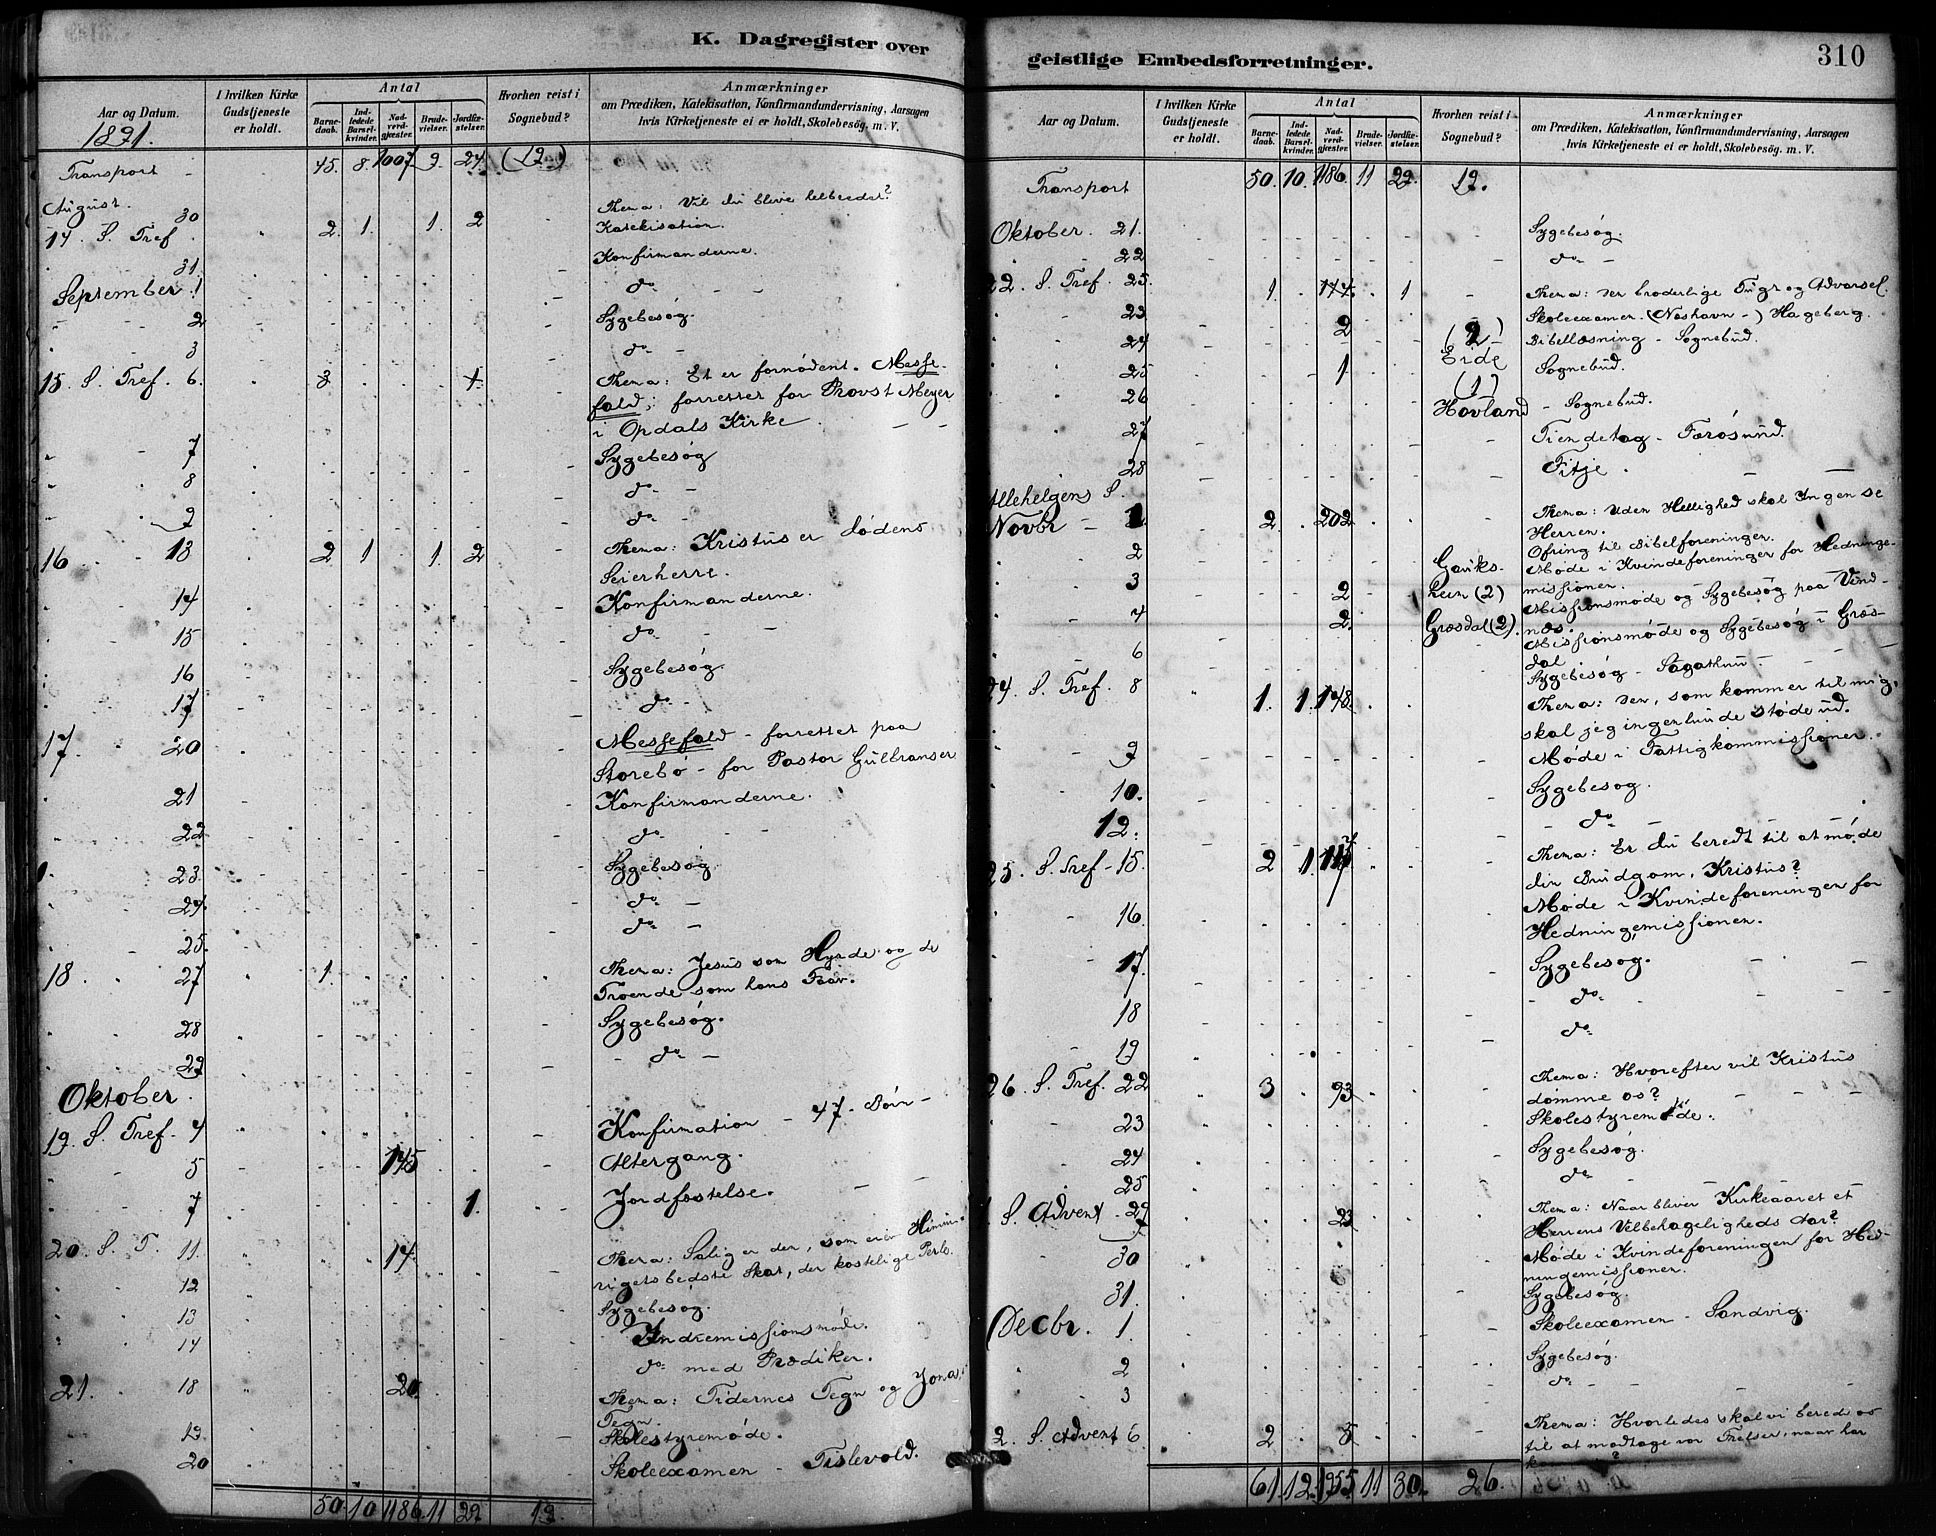 K. Dagregister over
Aar og Datum.
I hvilken Kirke Gudstjeneste er holdt.
Antal
Barnedaab.
Indledede Barselkvinder.
Nadverdgjæster.
Brudevielser.
Jordfæstelser.
Hvorhen reist i Sognebud?
Anmærkninger
om Prædiken, Katekisation, Konfirmandundervisning, Aarsagen
hvis Kirketjeneste ei er holdt, Skolebesög. m. V.
1891.
Transport - 45. 8. 1007 9. 24. (12)
August. 30 Thema: Vil du blive helbredet?
14 S. Tref. 2. 1. 1. 2 Katekisation.
31. Konfirmanderne.
September 1 do -
2 Sygebesøg.
3 do -
15. S. Tref. 6. 3 1. Thema: Et er fornødent. Messe-
fald; forrettet for Provst Meyer
i Opdals Kirke
7 Sygebesøg
8 do -
9 do -
16 13 2 1 1. 2 Thema: Kristus er Dødens
Seierherre.
14 Konfirmanderne.
15 do -
16 Sygebesøg
17 do -
17. 20 Messefald - forrettet paa
Storebø - for Pastor Gulbransen
21 Konfirmanderne.
22 do -
23. Sygebesøg
24. do -
25. do -
18. 27 1. Thema: Jesus som Hyrde og de
Troende som hans Faar.
28 Sygebesøg.
29 do -
Oktober.
19. S. Tref. 4 Konfirmation - 47. Børn -
5 145 Altergang.
7 1. Jordfæstelse.
20. S. T. 11. 14. Thema: Salig er den, som eier Himme-
rigets bedste Skat, den kostelige Perle.
12 Sygebesøg.
13 Indremissionsmøde.
14 do med Prædiken.
21. 18 20 Thema: Tidernes Tegn og Jonas
Tegn.
19. Skolestyremøde.
20 Skoleexamen - Tislevold.
50 10 1186 11 29 12.
geistlige Embedsforretninger.
310
Aar og Datum.
I hvilken Kirke Gudstjeneste er holdt.
Antal
Barnedaab.
Indledede Barselkvinder.
Nadverdgjæster.
Brudevielser.
Jordfæstelser.
Hvorhen reist i Sognebud?
Anmærkninger
om Prædiken, Katekisation, Konfirmandundervisning, Aarsagen
hvis Kirketjeneste ei er holdt, Skolebesög. m. V.
Transport 50. 10. 1186. 11 29. 12.
Oktober. 21. Sygebesøg.
22 do -
22. S. Tref. 25. 1. 144. 1 Thema: Den broderlige Tugt og Advarsel.
23 Skoleexamen. (Næshavn -) Hageberg.
24 2 (2) Eide Bibellæsning - Sognebud.
25 1 (1) Sognebud.
26 Hovland - Sognebud.
27 Tiendetag - Færøsund.
28 Fitje.
Allehelgens S.
Novbr - 1 2. 202 Thema: Uden Hellighed skal Ingen se
Herren.
Ofring til Bibelforeningen.
2 Møde i Kvindeforeningen for Hedninge-
missionen.
3 2 Gaukshein (2) Missionsmøde og Sygebesøg paa Vind-
næs.
4 2. Græsdal (2). Missionsmøde og Sygebesøg i Græs-
dal
6 Sygebesøg - Sagathun -
24. S. Tref. 8 1. 1. 148. Thema: Den, som kommer til mig,
skal jeg ingenlunde støde ud.
9 Møde i Fattigkommissionen.
10. Sygebesøg.
12. do -
25. S. Tref - 15. 2 1. Thema: Er du beredt til at møde
din Brudgom, Kristus?
16. Møde i Kvindeforeningen for
Hedningemissionen.
17. Sygebesøg.
18 do
19 do
26. S. Tref. 22 3 93 Thema: Hvorefter vil Kristus
dømme os?
23 Skolestyremøde.
24 Sygebesøg.
25 do
S. Advent - 29 23 Thema: Naar bliver Kirkeaaret et
Herrens Velbehageligheds Aar?
30 Møde i Kvindeforeningen for Hed-
ningemissionen.
31. Sygebesøg.
Decbr. 1. Skoleexamen - Sandvig.
2 Sygebesøg.
3 do -
2. S. Advent 6. 2 5 Thema: Hvorledes skal vi berede os
til at modtage vor Frelser, naar han
61. 12. 1955 11 30. 26.